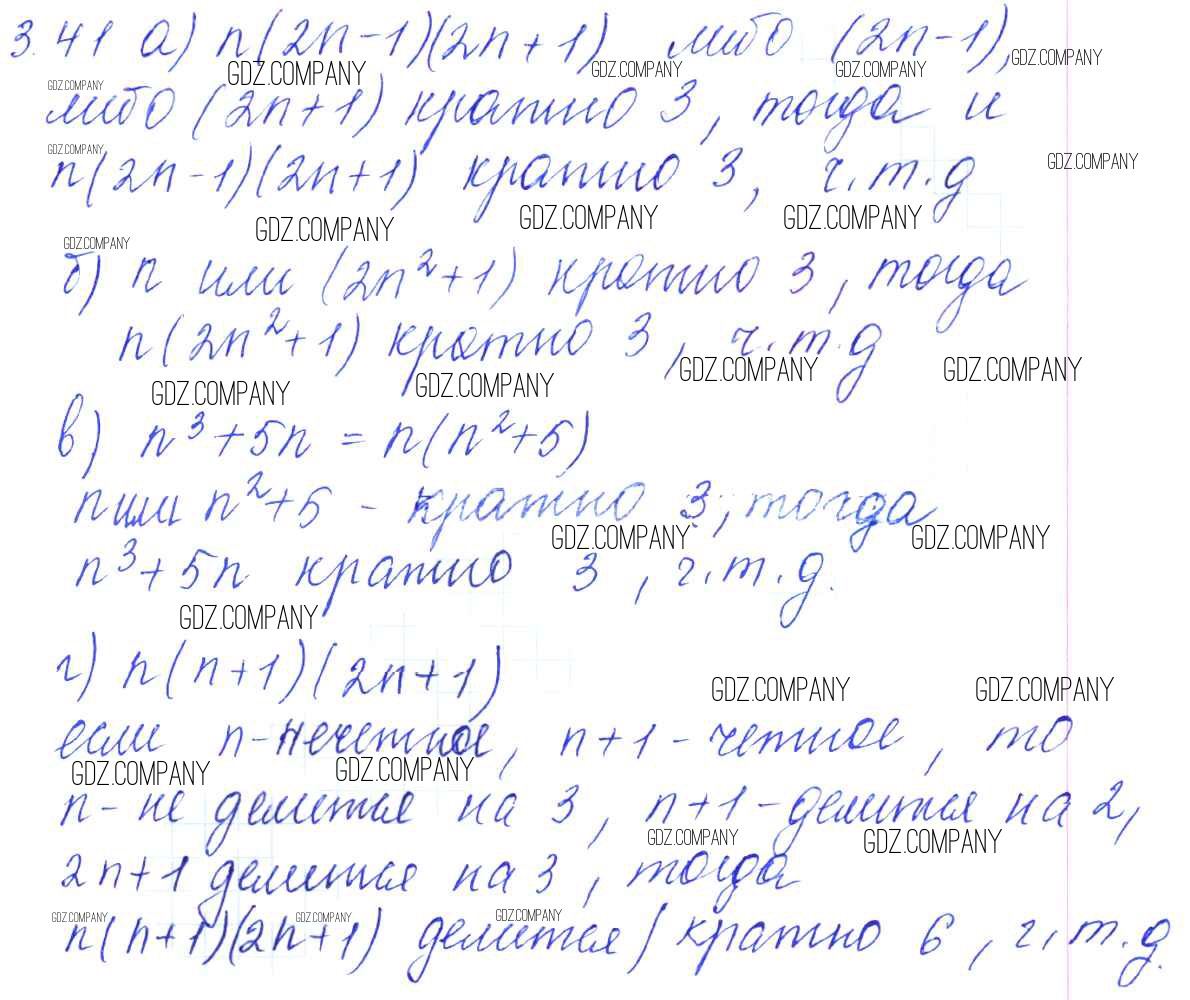 3.41 а) n(2n-1)(2n+1) либо (2n-1),
GDZ.COMPANY GDZ.COMPANY GDZ.COMPANY GDZ.COMPANY GDZ.COMPANY
либо (2n+1) кратно 3, тогда и
GDZ.COMPANY GDZ.COMPANY
n(2n-1)(2n+1) кратно 3, ч.т.д
GDZ.COMPANY GDZ.COMPANY GDZ.COMPANY GDZ.COMPANY
б) n или (2n²+1) кратно 3, тогда
n(2n²+1) кратно 3, ч.т.д
GDZ.COMPANY GDZ.COMPANY GDZ.COMPANY GDZ.COMPANY
в) n³+5n = n(n²+5)
n или n²+5 - кратно 3, тогда
GDZ.COMPANY GDZ.COMPANY
n³+5n кратно 3, ч.т.д.
GDZ.COMPANY
г) n(n+1)(2n+1)
GDZ.COMPANY GDZ.COMPANY
если n-нечетное, n+1-четное, то
GDZ.COMPANY GDZ.COMPANY
n- не делится на 3, n+1-делится на 2,
GDZ.COMPANY GDZ.COMPANY
2n+1 делится на 3, тогда
GDZ.COMPANY GDZ.COMPANY GDZ.COMPANY
n(n+1)(2n+1) делится/кратно 6, ч.т.д.